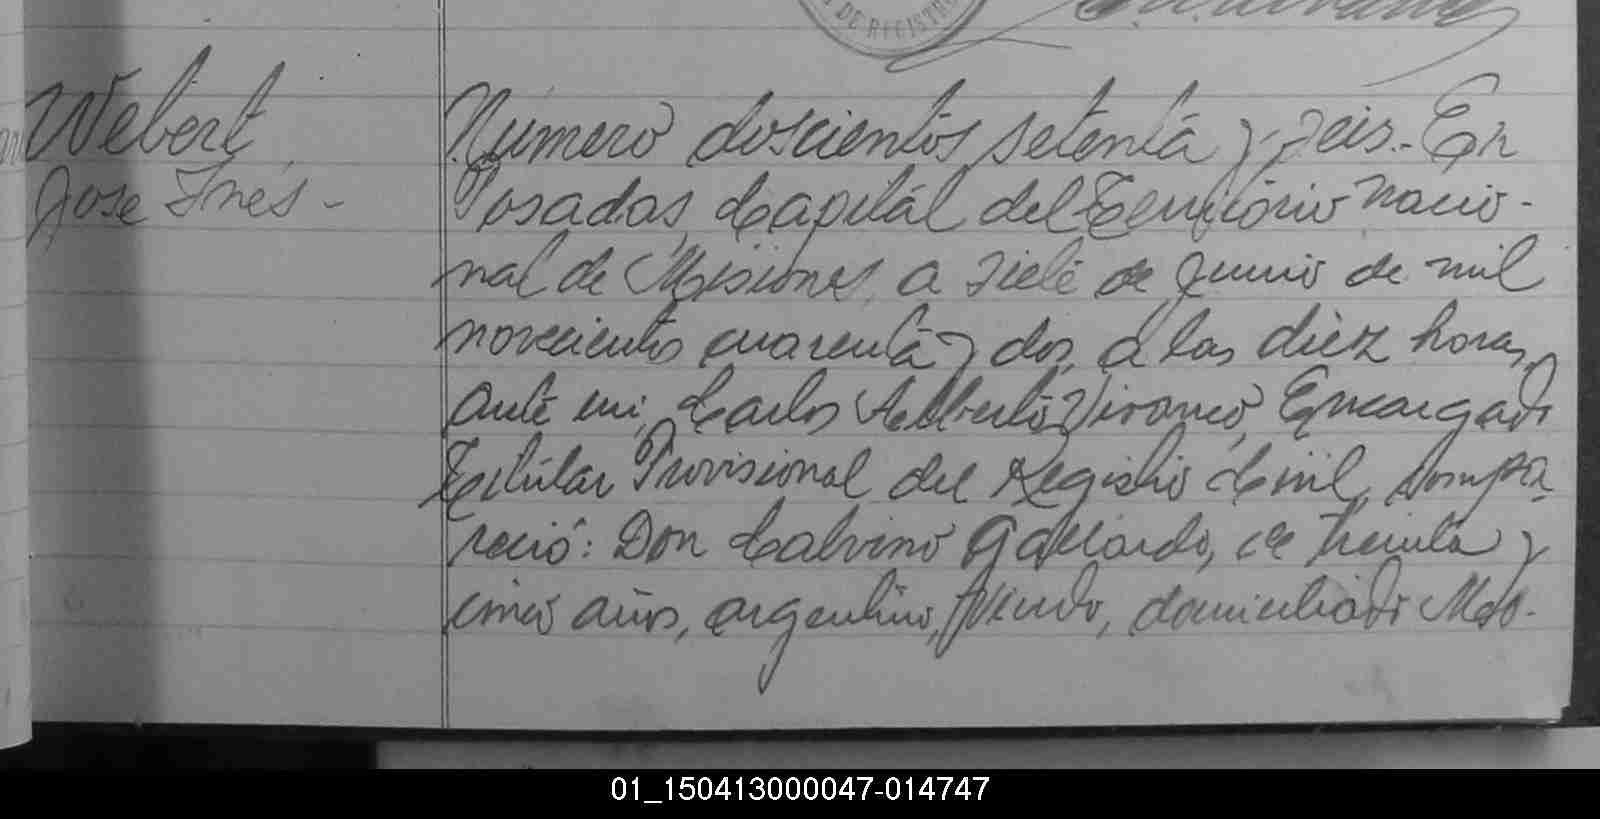 DE REGISTRO
Webert
José Inés -
Número doscientos setenta y seis.- En
Posadas, Capital del Territorio Nacio-
nal de Misiones, a siete de Junio de mil
novecientos cuarenta y dos, a las diez horas,
ante mi, Carlos Alberto Vivanco, Encargado
Titular Provisional del Registro Civil, compa-
reció: Don Calvino Gallardo, de treinta y
cinco años, argentino, viudo, domiciliado
01_150413000047-014747